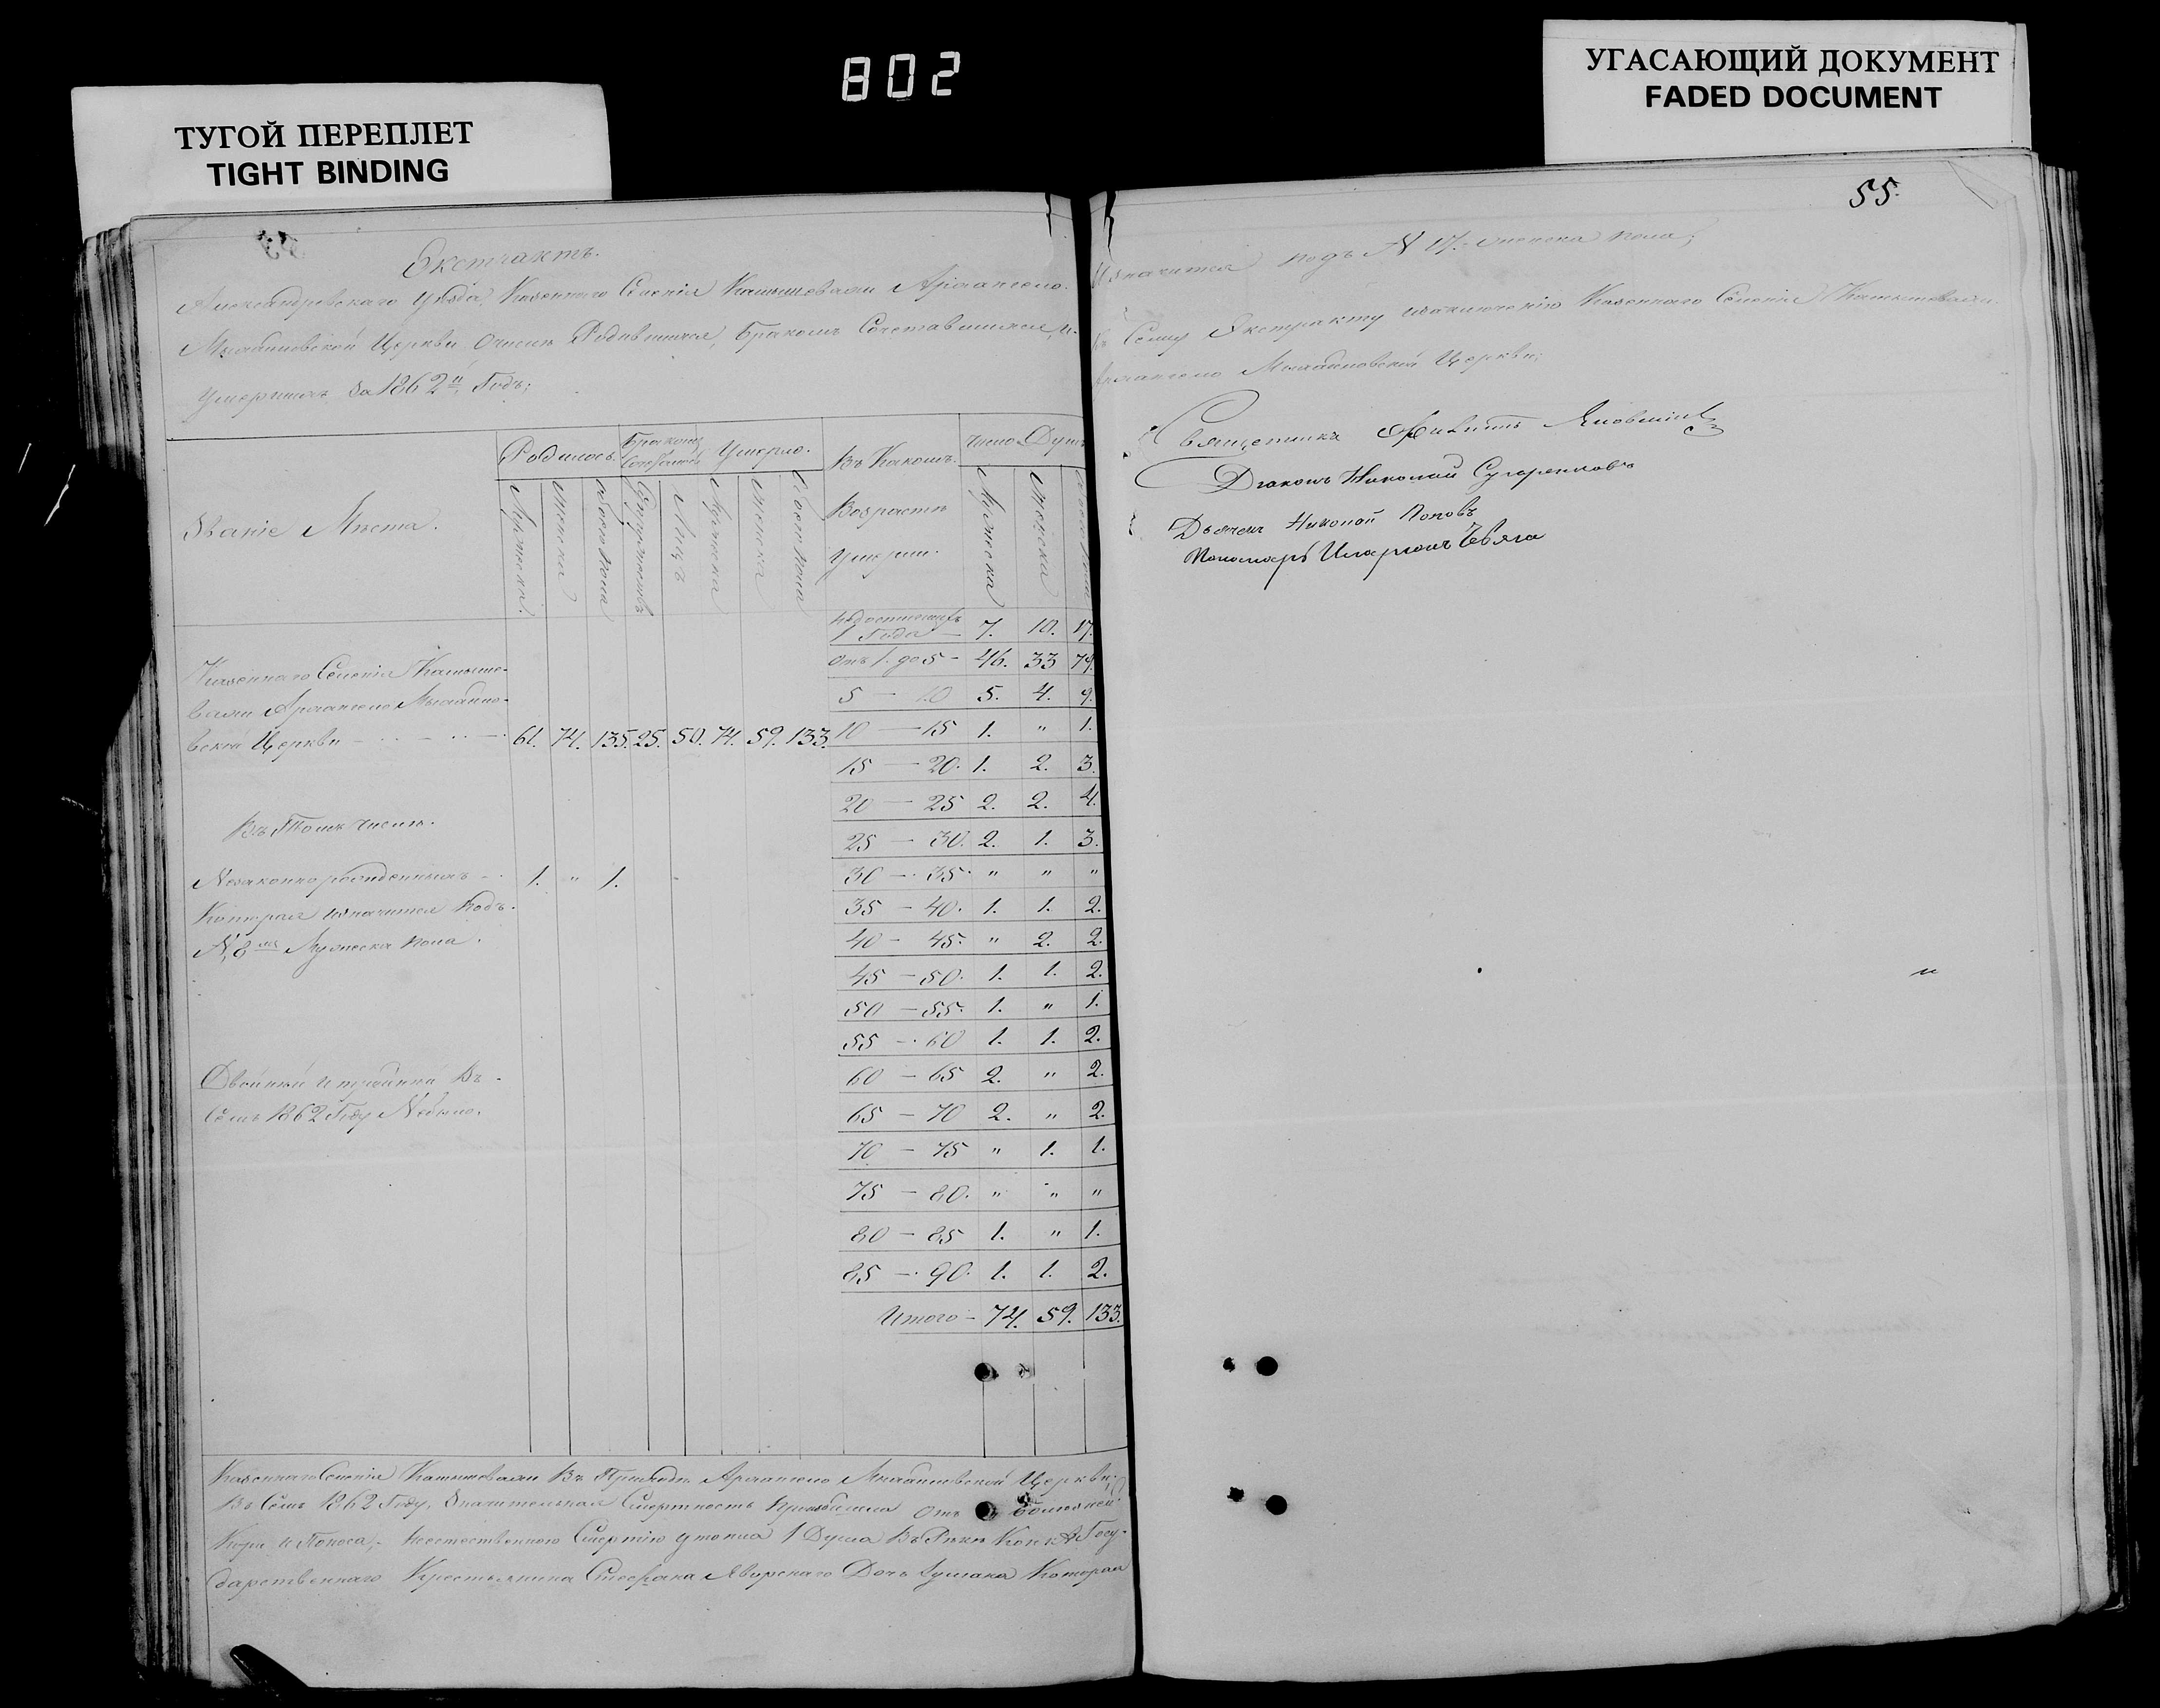 802
ТУГОЙ ПЕРЕПЛЕТ
TIGHT BINDING
УГАСАЮЩИЙ ДОКУМЕНТ
FADED DOCUMENT
Экстрактъ.
Александровскаго Уѣзда, Казеннаго Селенія Камышевахи Архангело-
Михайловской Церкви Очислѣ Родившихся, Бракомъ Сочетавшихся, и
Умершихъ За 1862й Годъ;
Званіе Мѣста.
Родилось.
Бракомъ Сочеталось
Умерло.
Въ Какомъ Возрастѣ Умерли.
Число Душъ
Мужеска
Женска
Обоего пола
Супружествъ
Лицъ
Мужеска
Женска
Обоего пола
Мужеска
Женска
Обоего пола
Недостигшихъ 1 Года — 7. 10. 17.
Отъ 1. до 5 — 46. 33 79.
5 — 10 5. 4. 9.
10 — 15 1. " 1.
15 — 20. 1. 2. 3.
20 — 25 2. 2. 4.
25 — 30. 2. 1. 3.
30 — 35. " " "
35 — 40. 1. 1. 2.
40 — 45. " 2. 2.
45 — 50. 1. 1. 2.
50 — 55. 1. " 1.
55 — 60 1. 1. 2.
60 — 65 2. " 2.
65 — 70 2. " 2.
70 — 75 " 1. 1.
75 — 80. " " "
80 — 85 1. " 1.
85 — 90. 1. 1. 2.
Итого — 74. 59. 133.
Казеннаго Селенія Камыше-
вахи Архангело Михайло-
вской Церкви 61. 74. 135. 25. 50. 74. 59. 133.
Въ Томъ Числѣ.
Незаконнорожденныхъ — 1. " 1.
Которая значится Подъ
№ 8мъ Мужеска пола.
Двойни и тройни Въ
Семъ 1862 Году Небыло.
Казеннаго Селенія Камышевахи Въ Приходѣ Архангело Михайловской Церкви
Въ Семъ 1862 Году, Значительная Смертность Отъ
Кори и Поноса; Неестественною Смертію утопла 1 Душа Въ Рѣкѣ Конкѣ Госу-
дарственнаго Крестьянина Стефана Яворскаго Дочь Которая
55.
Значится подъ № 17. женска пола;
Къ Сему Экстракту Казеннаго Селенія Камышевахи
Архангело Михайловской Церкви;
Священникъ
Діаконъ Николай
Дьячекъ Николай Поповъ
Пономарь Иларіонъ